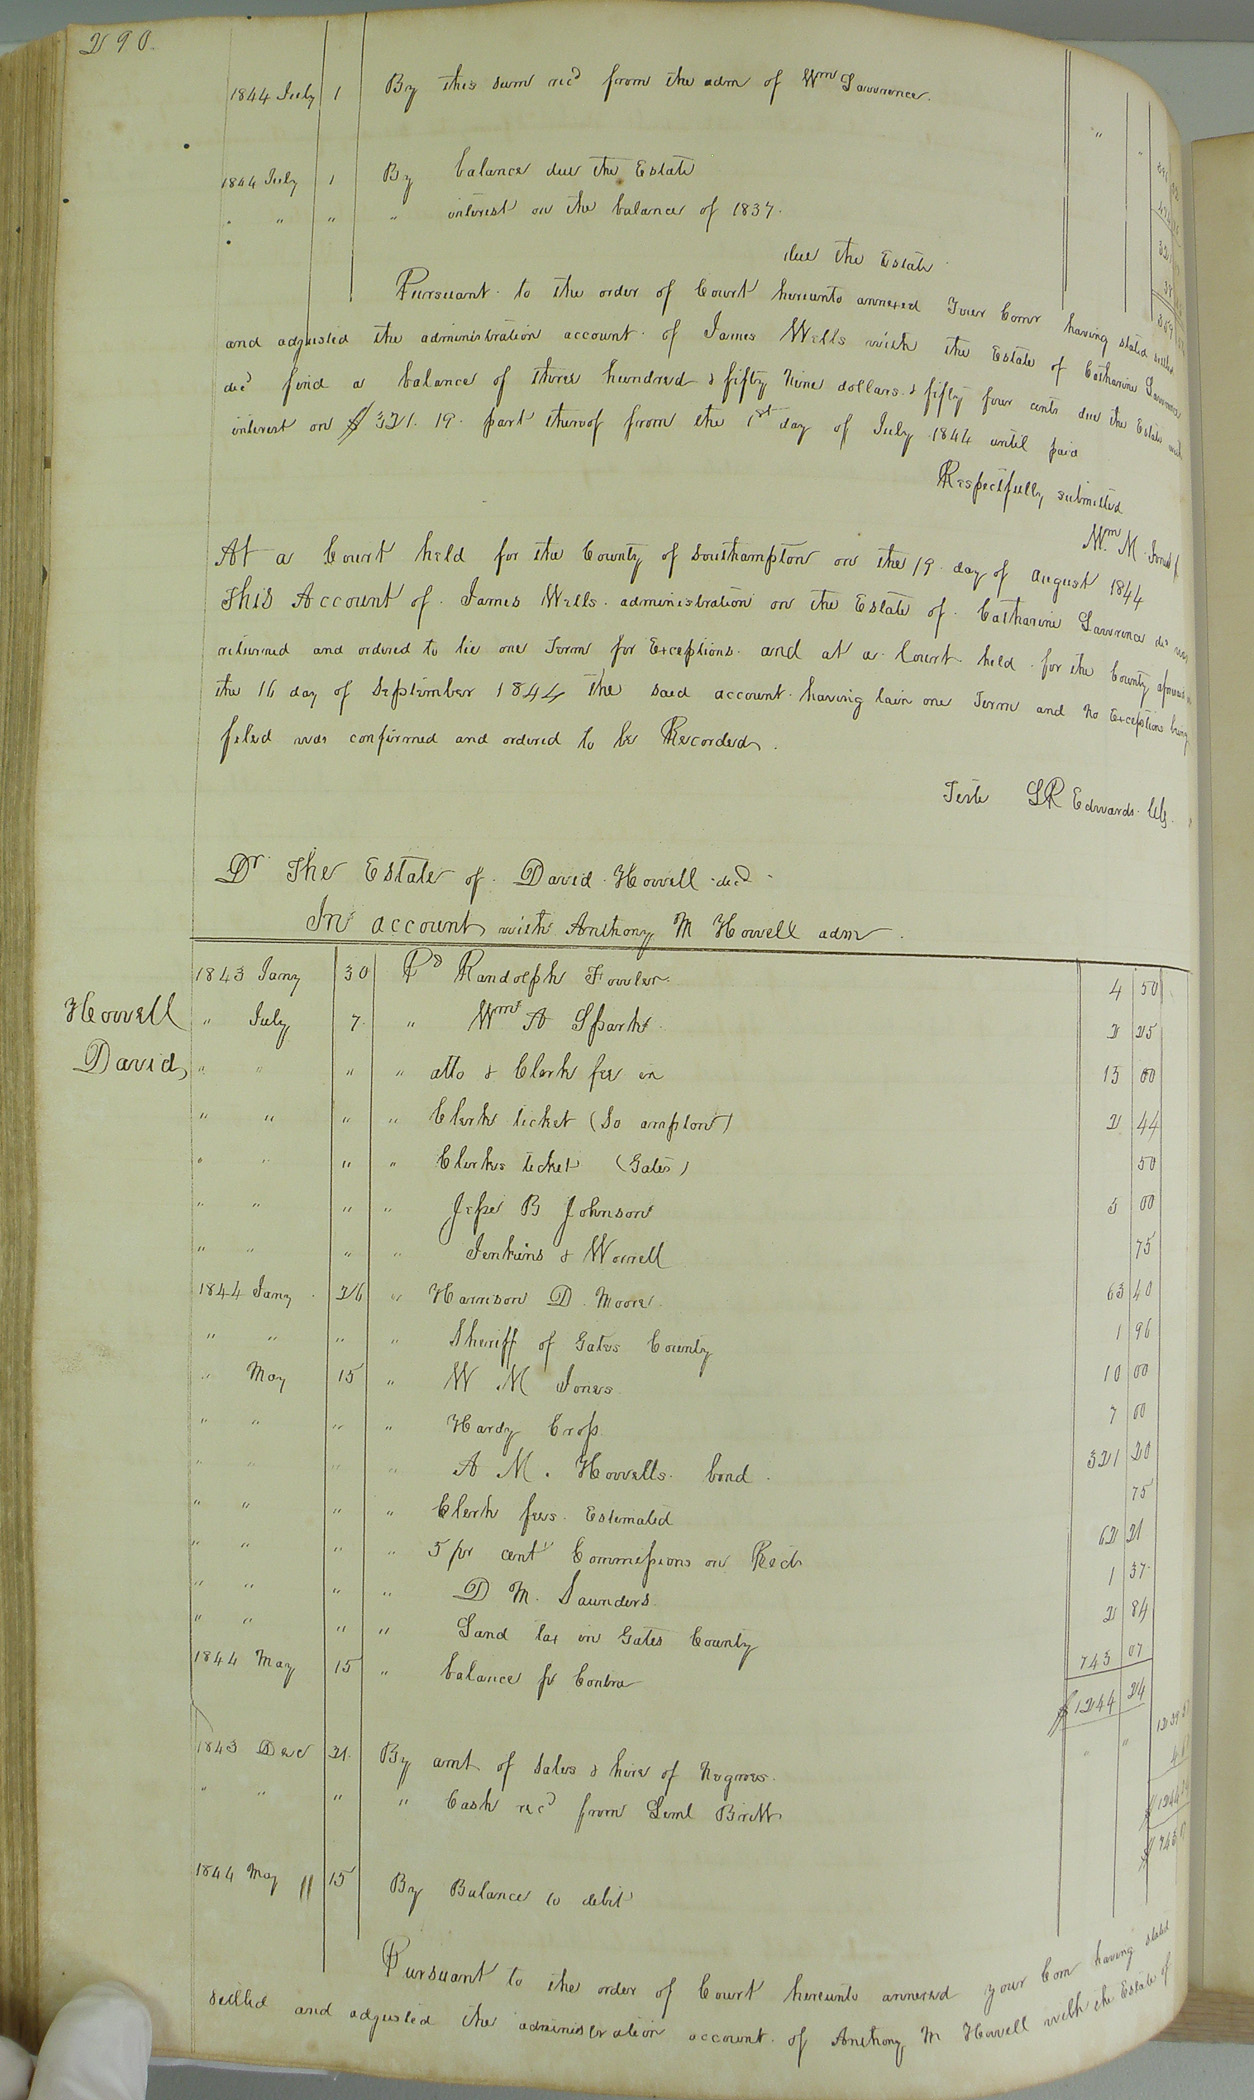 290.
1844 July 1 By this sum recd from the adm of Wm Lawrence.
1844 July 1 By balance due the Estate
" " " " interest on the balance of 1837.
due the Estate
Pursuant to the order of Court hereunto annexed Your Comr having stated settled
and adjusted the administration account of James Wells with the Estate of Catharine Lawrence
decd find a balance of three hundred & fifty Nine dollars & fifty four cents due the Estate with
interest on $321.19 part thereof from the 1st day of July 1844 until paid
Respectfully submitted
Wm M. Jones
At a Court held for the County of Southampton on the 19 day of August 1844
This Account of James Wells administration on the Estate of Catharine Lawrence decd was
returned and ordered to lie one Term for Exceptions and at a Court held for the County aforesaid on
the 16 day of September 1844 the said account having lain one Term and no Exceptions being
filed was confirmed and ordered to be Recorded.
Teste LR Edwards Clk
Dr The Estate of David Howell decd
In account with Anthony M Howell adm.
Howell
David
1843 Jany 30 Pd Randolph Fowler 4 50
" July 7 " Wm A Spark 2 25
" " " " atto & Clerk fee in 15 00
" " " " Clerk ticket (So ampton) 2 44
" " " " Clerks ticket (Gates) 50
" " " " Jesse B Johnson 5 00
" " " " Jenkins & Worrell 75
1844 Jany 26 " Harrison D. Moore 63 40
" " " " Sheriff of Gates County 1 96
" May 15 " W M Jones 10 00
" " " " Hardy Cross 7 00
" " " " A M. Howells bond 321 20
" " " " Clerk fees Estimated 75
" " " " 5 pr cent Commissions on Recd 62 21
" " " " D M. Saunders 1 37
" " " " Land tax in Gates County 2 84
1844 May 15 " balance pr Contra 743 07
$1244 24
1843 Dec 21 By amt of Sales & hire of Negroes 1239
" " " " Cash recd from Leml Britt
$1244
1844 May 15 By Balance to debit $743 07
Pursuant to the order of Court hereunto annexed your Com having stated
settled and adjusted the administration account of Anthony M Howell with the Estate of